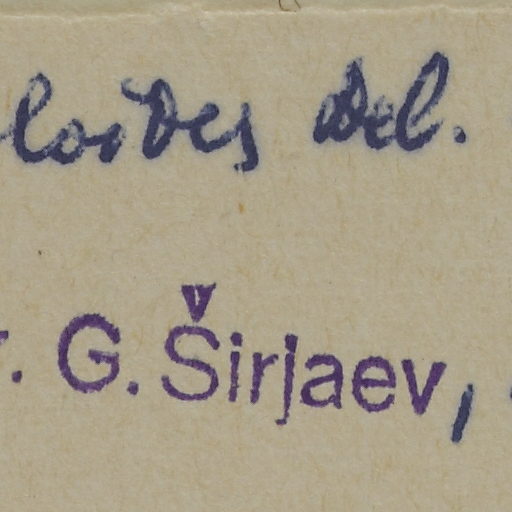 loides Del.
. G. Širjaev,